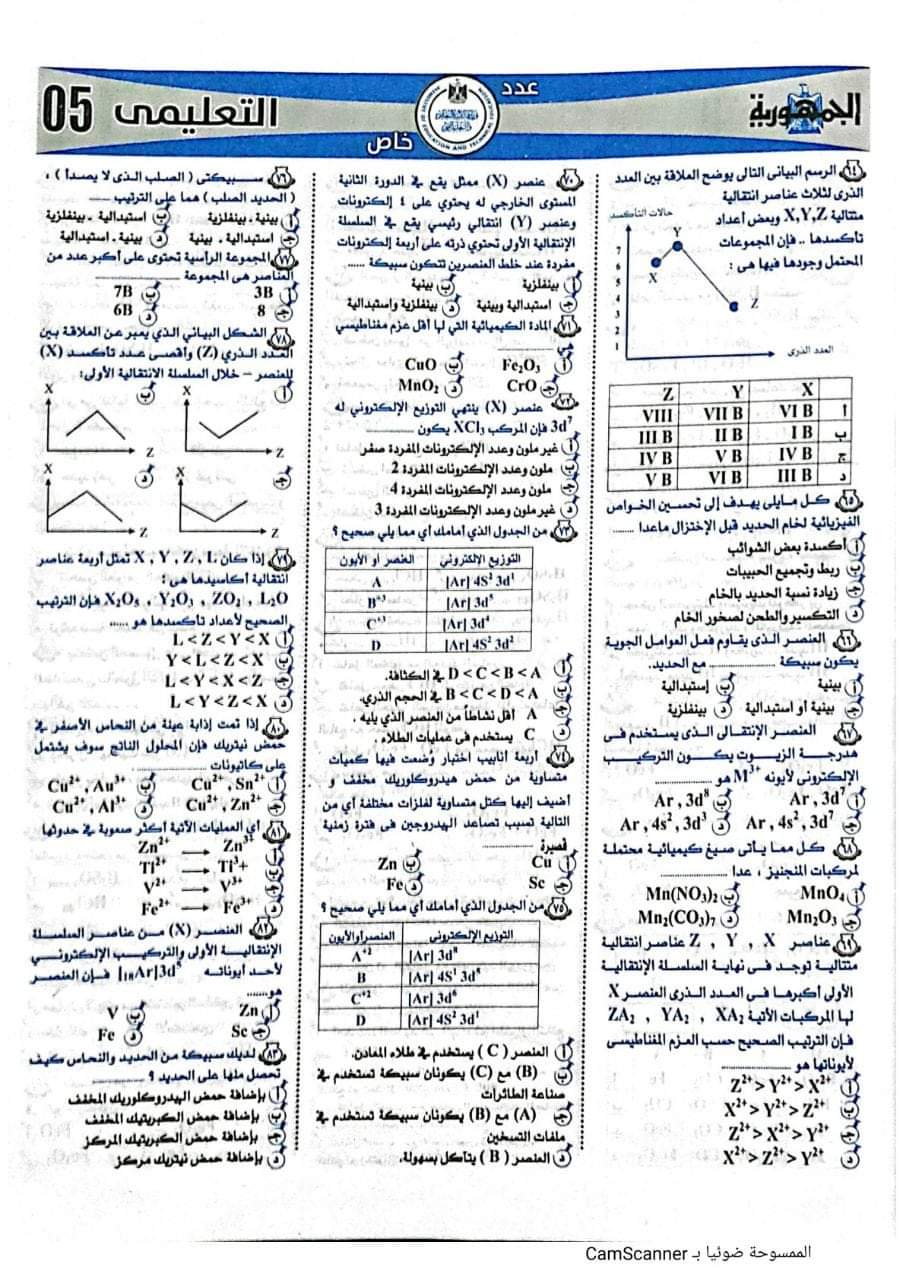 الجمهورية
عدد
خاص
التعليمى 05
٦٤ الرسم البيانى التالى يوضح العلاقة بين العدد
الذرى لثلاث عناصر انتقالية
متتالية X,Y,Z وبعض أعداد
تأكسدها .. فإن المجموعات
المحتمل وجودها فيها هى :
حالات التأكسد
7
6
5
4
3
2
1
X
Y
Z
العدد الذرى
X Y Z
أ VI B VII B VIII
ب I B II B III B
ج IV B V B IV B
د III B VI B V B
٦٥ كل مايلى يهدف إلى تحسين الخواص
الفيزيائية لخام الحديد قبل الإختزال ماعدا ......
أ أكسدة بعض الشوائب
ب ربط وتجميع الحبيبات
ج زيادة نسبة الحديد بالخام
د التكسير والطحن لصخور الخام
٦٦ العنصر الذى يقاوم فعل العوامل الجوية
يكون سبيكة .................. مع الحديد.
أ بينية ب إستبدالية
ج بينية أو استبدالية د بينفلزية
٦٧ العنصر الإنتقالى الذى يستخدم فى
هدرجة الزيوت يكون التركيب
الإلكترونى لأيونه M³⁺ هو ..........
أ Ar , 3d⁷ ب Ar , 3d⁸
ج Ar , 4s² , 3d⁷ د Ar , 4s² , 3d³
٦٨ كل مما يأتى صيغ كيميائية محتملة
لمركبات المنجنيز ، عدا ..............
أ MnO₄ ب Mn(NO₃)₂
ج Mn₂O₃ د Mn₂(CO₃)₇
٦٩ عناصر X , Y , Z عناصر انتقالية
متتالية توجد فى نهاية السلسلة الإنتقالية
الأولى أكبرها فى العدد الذرى العنصر X
لها المركبات الأتية XA₂ , YA₂ , ZA₂
فإن الترتيب الصحيح حسب العزم المغناطيسى
لأيوناتها هو ..............
أ Z²⁺ > Y²⁺ > X²⁺
ب X²⁺ > Y²⁺ > Z²⁺
ج Z²⁺ > X²⁺ > Y²⁺
د X²⁺ > Z²⁺ > Y²⁺
٧٠ عنصر (X) ممثل يقع في الدورة الثانية
المستوى الخارجي له يحتوي على ٤ إلكترونات
وعنصر (Y) انتقالي رئيسي يقع في السلسلة
الإنتقالية الأولى تحتوي ذرته على أربعة إلكترونات
مفردة عند خلط العنصرين تتكون سبيكة ......
أ بينفلزية ب بينية
ج استبدالية وبينية د بينفلزية واستبدالية
٧١ المادة الكيميائية التي لها أقل عزم مغناطيسي
أ Fe₂O₃ ب CuO
ج CrO د MnO₂
٧٢ عنصر (X) ينتهي التوزيع الإلكتروني له
3d⁷ فإن المركب XCl₃ يكون ..........
أ غير ملون وعدد الإلكترونات المفردة صفر
ب ملون وعدد الإلكترونات المفردة 2
ج ملون وعدد الإلكترونات المفردة 4
د غير ملون وعدد الإلكترونات المفردة 3
٧٣ من الجدول الذي أمامك أي مما يلي صحيح ؟
العنصر او الأيون التوزيع الإلكتروني
A [Ar] 4S² 3d¹
B⁺³ [Ar] 3d⁵
C⁺² [Ar] 3d⁴
D [Ar] 4S² 3d²
أ D < C < B < A في الكثافة.
ب B < C < D < A في الحجم الذري.
ج A أقل نشاطاً من العنصر الذي يليه .
د C يستخدم فى عمليات الطلاء .
٧٤ أربعة أنابيب اختبار وضعت فيها كميات
متساوية من حمض هيدروكلوريك مخفف و
أضيف إليها كتل متساوية لفلزات مختلفة أي من
التالية تسبب تصاعد الهيدروجين فى فترة زمنية
قصيرة .............
أ Cu ب Zn
ج Sc د Fe
٧٥ من الجدول الذي أمامك أي مما يلي صحيح ؟
العنصراوالأيون التوزيع الإلكتروني
A⁺² [Ar] 3d⁸
B [Ar] 4S¹ 3d⁵
C⁺² [Ar] 3d⁶
D [Ar] 4S² 3d¹
أ العنصر ( C ) يستخدم في طلاء المعادن.
ب (B) مع (C) يكونان سبيكة تستخدم في
صناعة الطائرات
ج (A) مع (B) يكونان سبيكة تستخدم في
ملفات التسخين
د العنصر ( B ) يتآكل بسهولة.
٧٦ سبيكتى ( الصلب الذى لا يصدأ ) ،
( الحديد الصلب ) هما على الترتيب ......
أ بينية ، بينفلزية ب استبدالية . بينفلزية
ج استبدالية . بينية د بينية . استبدالية
٧٧ المجموعة الرأسية تحتوى على أكبر عدد من
العناصر هى المجموعة ..............
أ 3B ب 7B
ج 8 د 6B
٧٨ الشكل البياني الذي يعبر عن العلاقة بين
العدد الذري (Z) وأقصى عدد تأكسد (X)
للعنصر – خلال السلسلة الانتقالية الأولى:
أ X Z ب X Z
ج X Z د X Z
٧٩ إذا كان X , Y , Z , L تمثل أربعة عناصر
انتقالية أكاسيدها هى :
X₂O₅ , Y₂O₃ , ZO₂ , L₂O فإن الترتيب
الصحيح لأعداد تأكسدها هو ......
أ L < Z < Y < X
ب Y < L < Z < X
ج L < Y < X < Z
د L < Y < Z < X
٨٠ إذا تمت إذابة عينة من النحاس الأصفر في
حمض نيتريك فإن المحلول الناتج سوف يشتمل
على كاتيونات ..............
أ Cu²⁺ , Sn²⁺ ب Cu²⁺, Au³⁺
ج Cu²⁺, Zn²⁺ د Cu²⁺, Al³⁺
٨١ أي العمليات الآتية أكثر صعوبة في حدوثها
أ Zn²⁺ → Zn³⁺
ب Ti²⁺ → Ti³+
ج V²⁺ → V³⁺
د Fe²⁺ → Fe³⁺
٨٢ العنصر (X) من عناصر السلسلة
الإنتقالية الأولى والتركيب الإلكتروني
لأحد أيوناته [₁₈Ar]3d⁵ فإن العنصر
هو.......
أ Zn ب V
ج Sc د Fe
٨٣ لديك سبيكة من الحديد والنحاس كيف
تحصل منها على الحديد ؟ ..............
أ بإضافة حمض الهيدروكلوريك المخفف
ب بإضافة حمض الكبريتيك المخفف
ج بإضافة حمض الكبريتيك المركز
د بإضافة حمض نيتريك مركز
الممسوحة ضوئيا بـ CamScanner